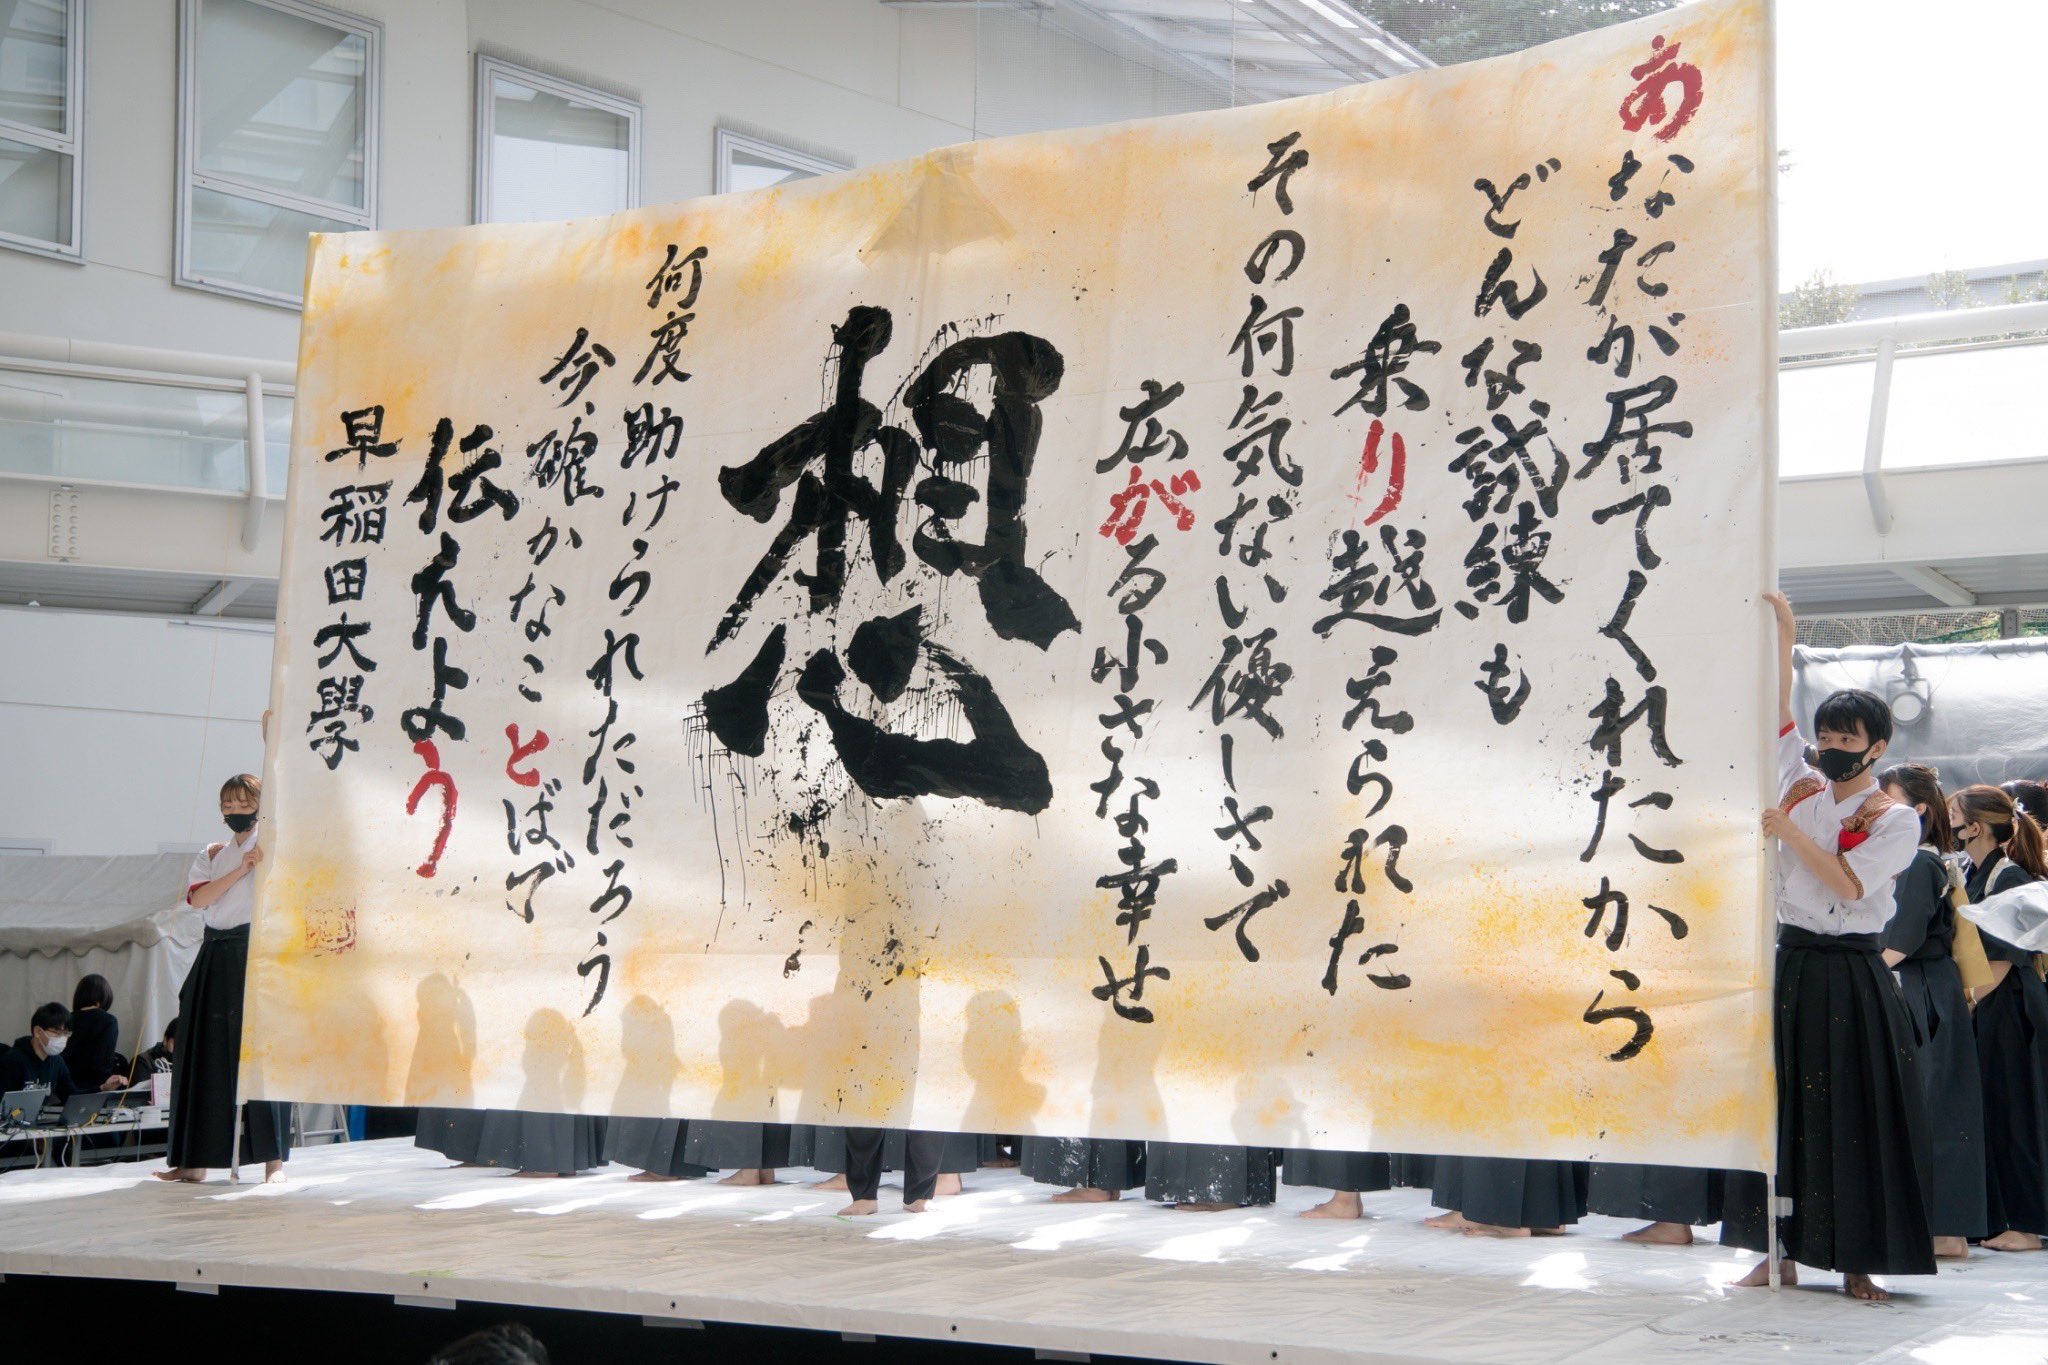 あなたが居てくれたから
どんな試練も
乗り越えられた
その何気ない優しさで
広がる小さな幸せ
想
何度助けられただろう
今、確かなことばで
伝えよう
早稲田大學